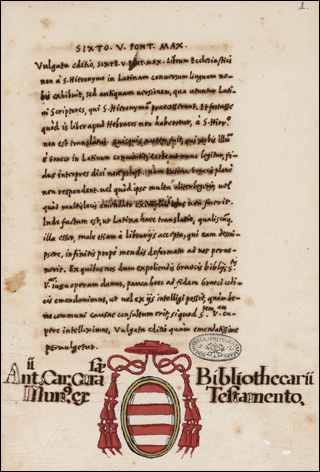 1.
SIXTO. V. PONT. MAX.
Vulgata editio, SIXTE. V. PONT. MAX. librum Ecclesiastici
non à S. Hieronymo in Latinam conuersum linguam nobis
exhibuit, sed antiquam uersionem, qua utuntur Latini
Scriptores, qui S. Hieronymū praecesserunt. Et fortasse
quòd is liber apud Hebraeos non haberetur, à S. Hier.º
non est
è Graeco in Latinum legitur,
interpres dici non potest. Graecis planè
non respondent. uel quòd ipse multa uel
quòd multis locis non fuerit.
Inde factum est, ut Latina haec translatio, qualiscunq.
illa esset, malè etiam à librarijs accepta, qui eam descripsere,
infinitis propè mendis deformata ad nos peruenerit.
Ex quibus nos dum expoliendis Graecis biblijs
V. iussu operam damus, ad fidem Graeci codicis
emendauimus, ut uel ex ijs intelligi possit, quàm bene
communi causae consultum erit, si quod S.tem V.am
cupere intelleximus, Vulgata editio quàm emendatissime
peruulgetur.
Ant.ii Car. Cura Bibliothecarii
Mun. ex Testamento.